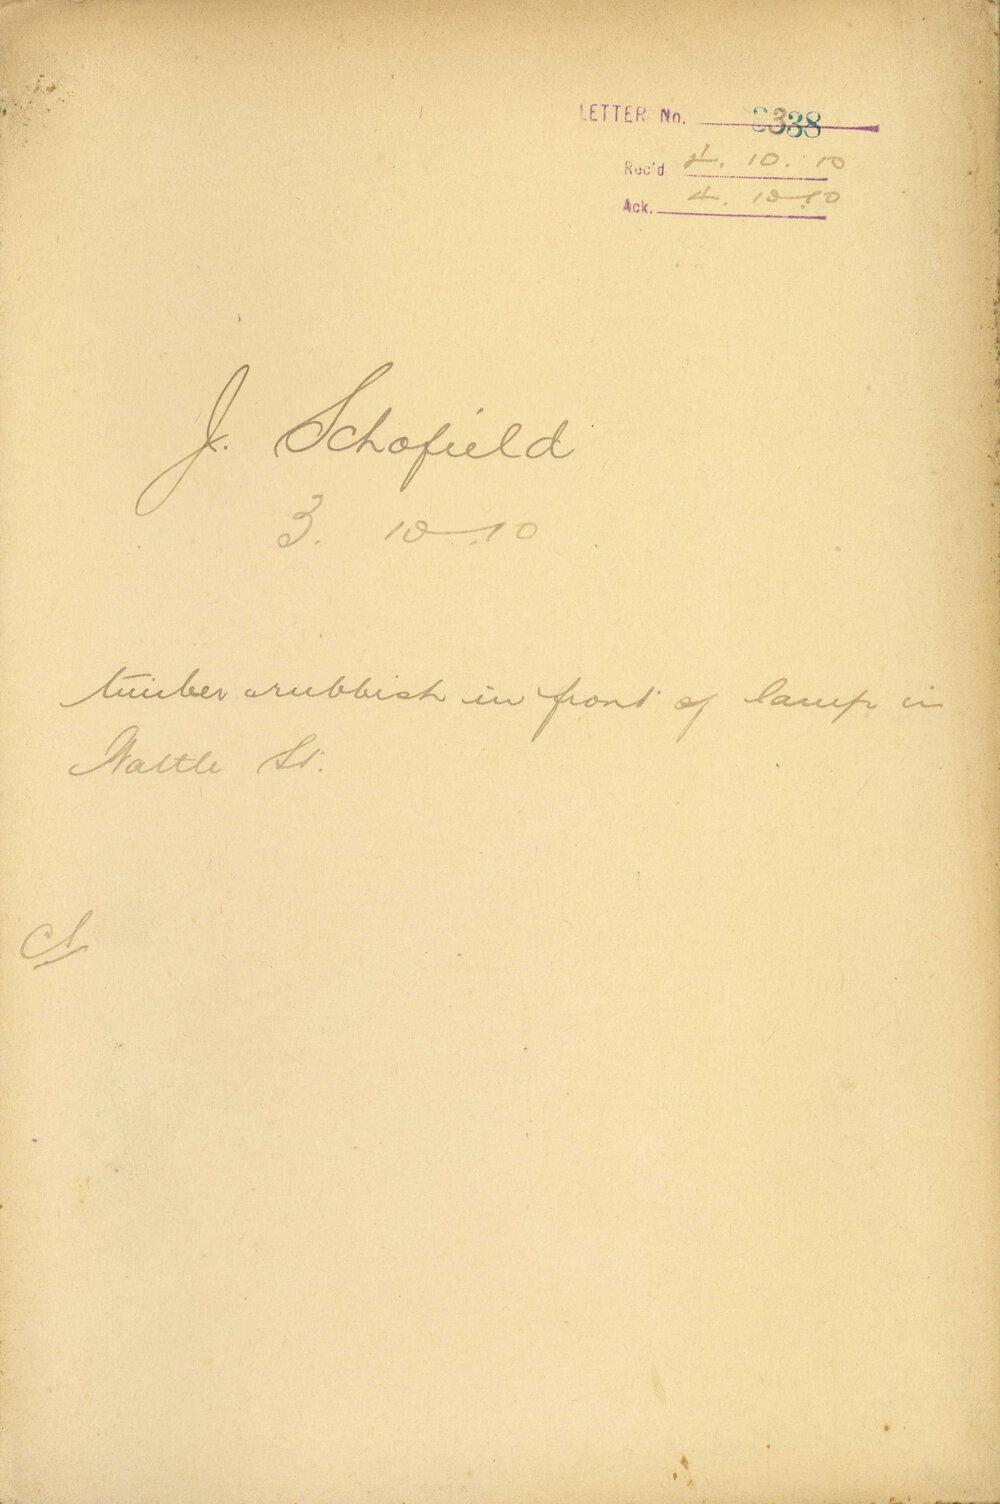 LETTER No. 3338
Rec'd 4. 10. 10
Ack. 4. 10.10
J. Schofield
3. 10.10
timber & rubbish in front of lamp in
Wattle St.